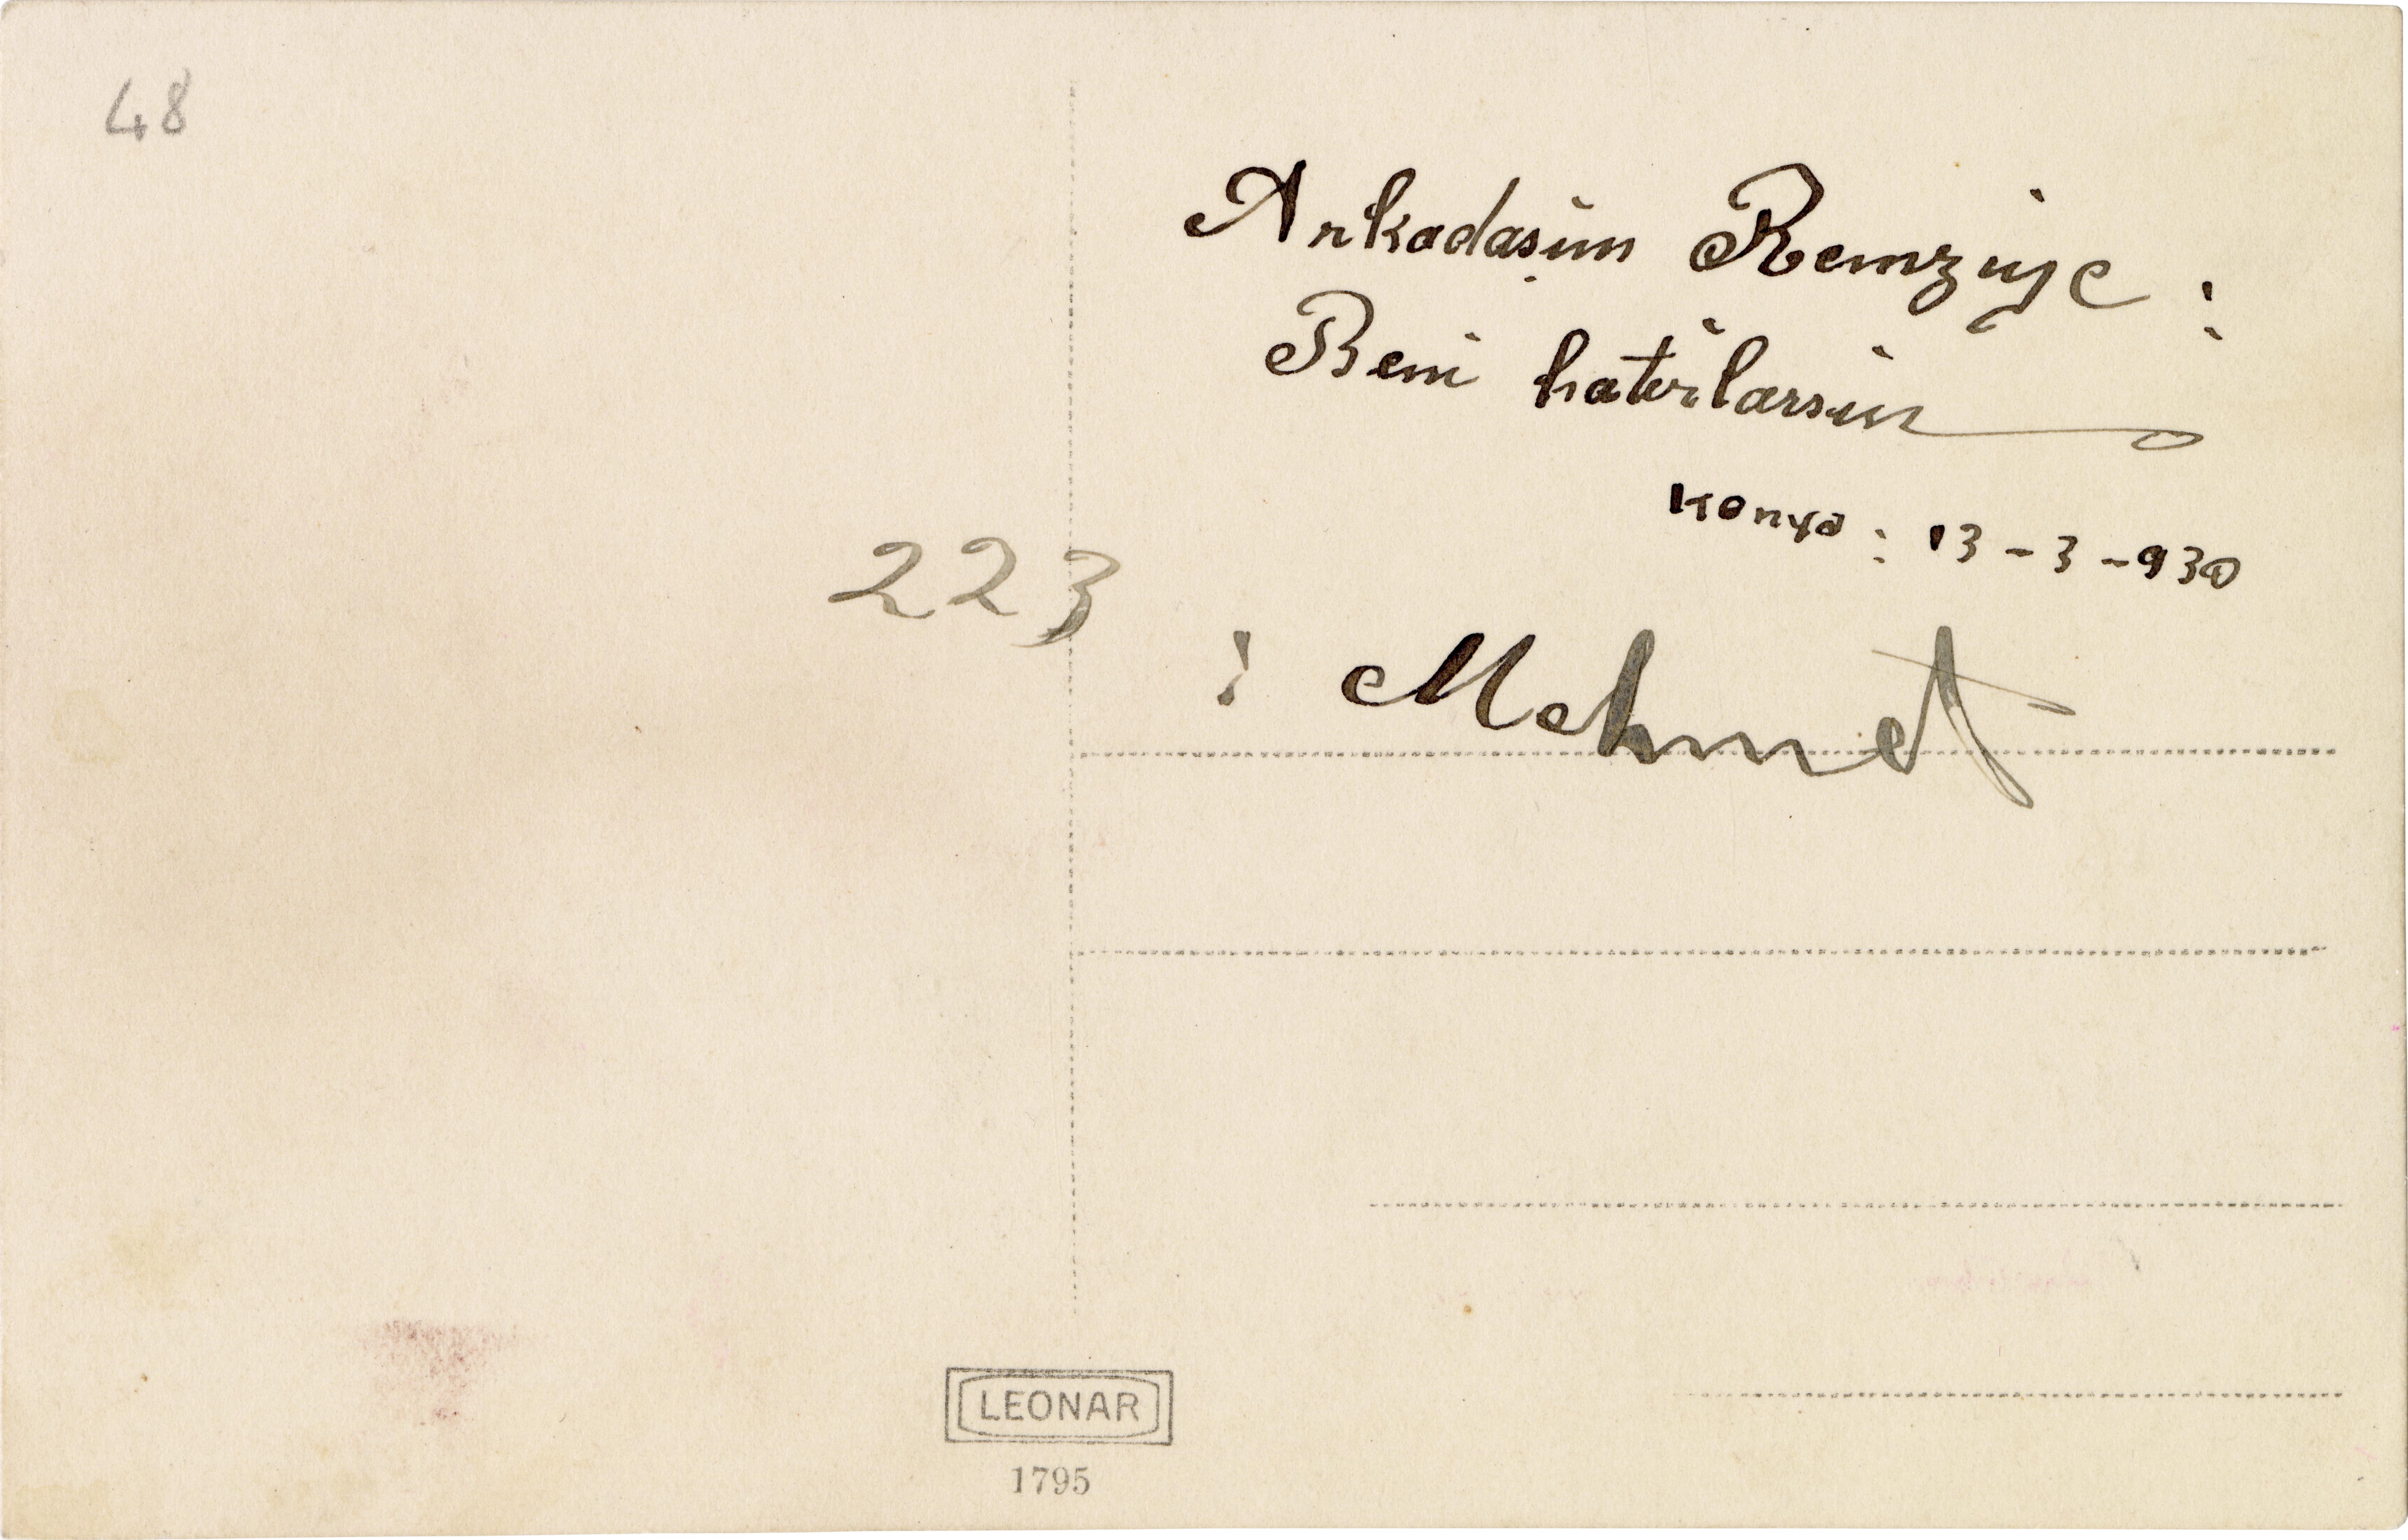 48
Arkadaşim Remziye :
Beni hatirlarsin
Konya : 13-3-930
223 : Mehmet
LEONAR
1795